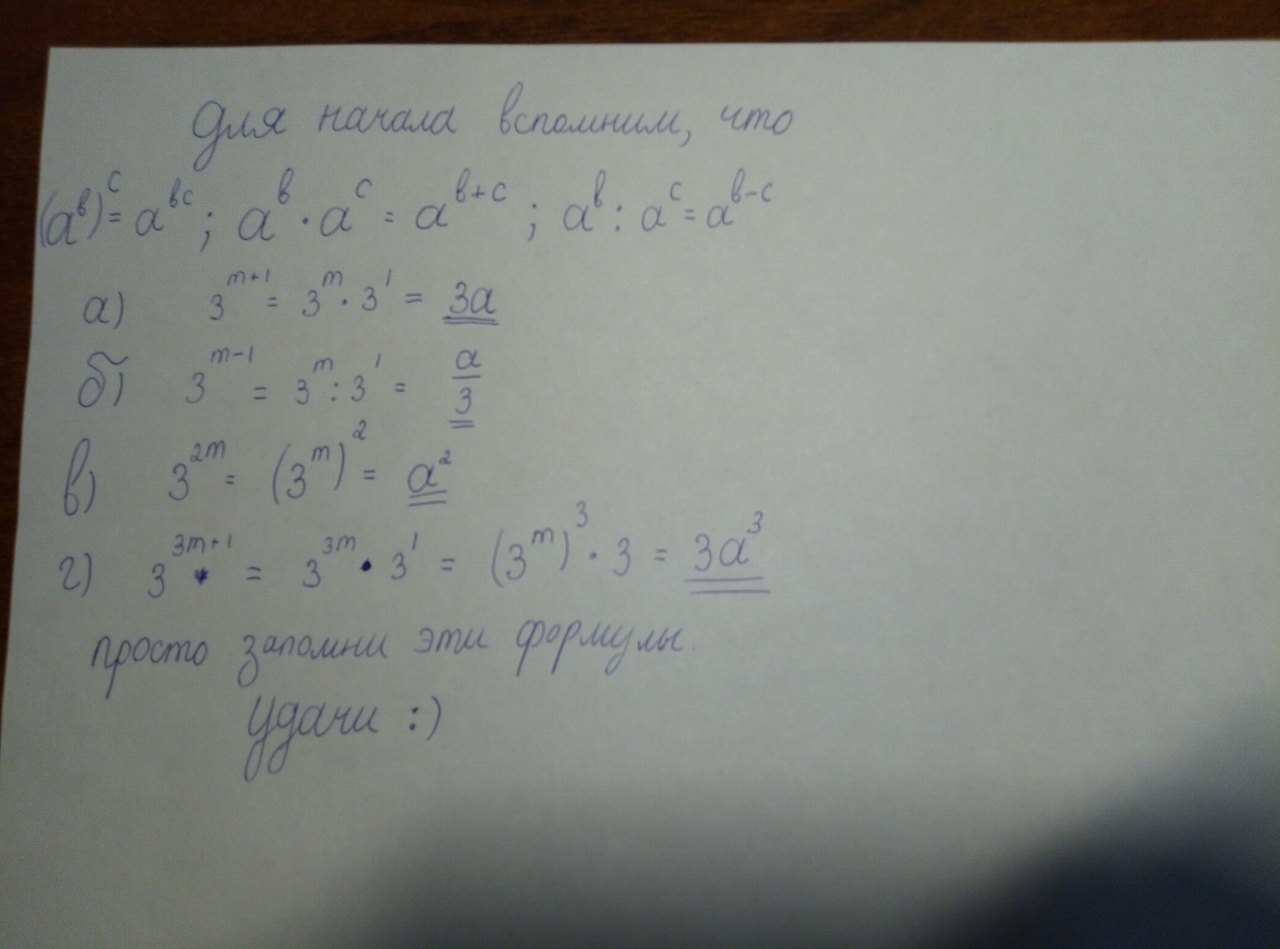 Для начала вспомним, что
(a^в)^c = a^вc ; a^в · a^c = a^в+c ; a^в : a^c = a^в-c
а) 3^m+1 = 3^m · 3^1 = 3a
б) 3^m-1 = 3^m : 3^1 = a/3
в) 3^2m = (3^m)^2 = a^2
г) 3^3m+1 = 3^3m · 3^1 = (3^m)^3 · 3 = 3a^3
просто запомни эти формулы.
Удачи :)